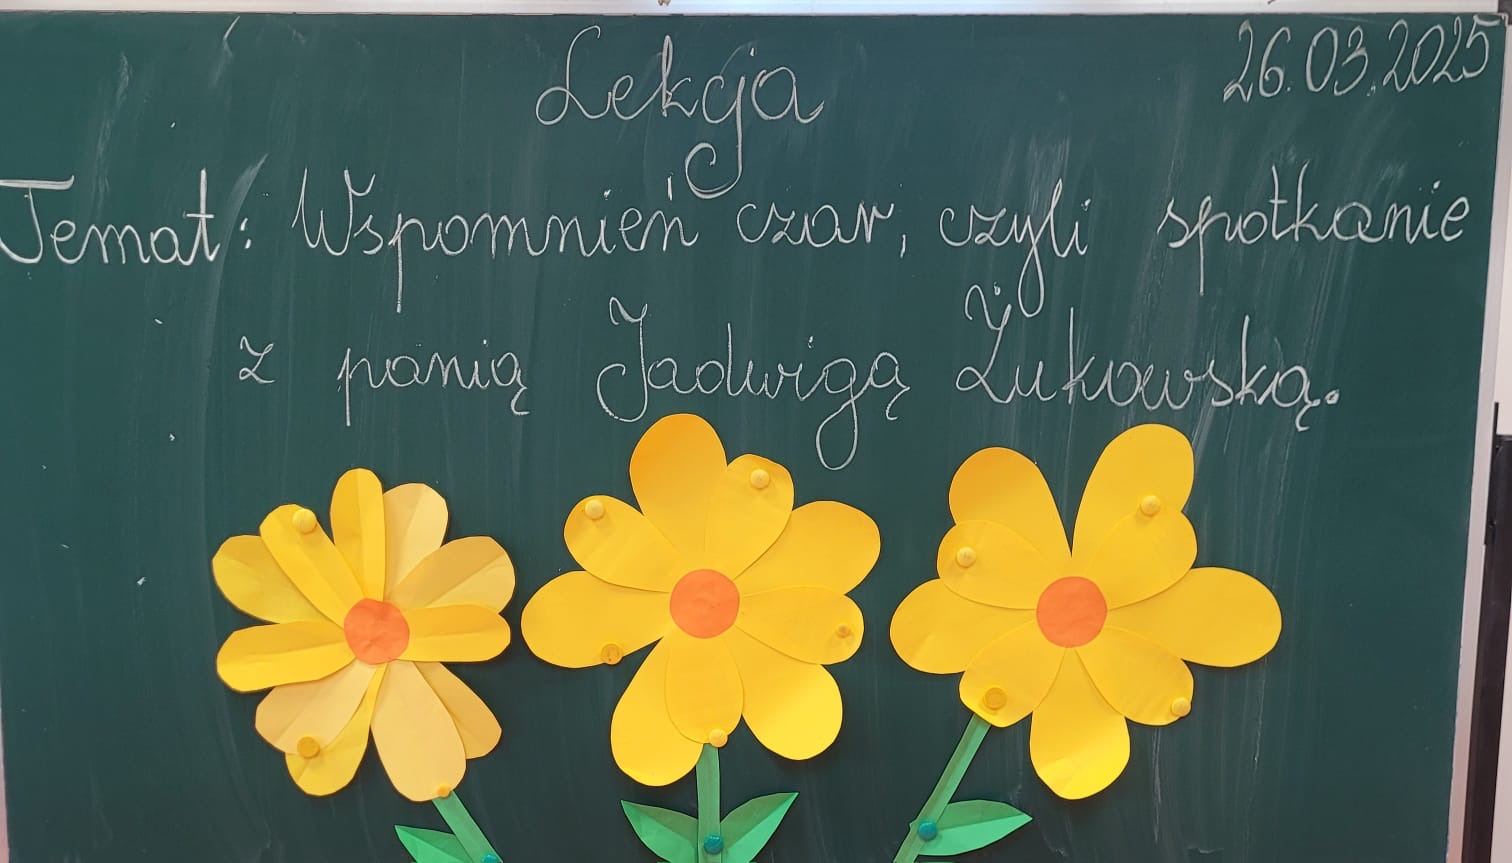 Lekcja 26.03.2025
Temat: Wspomnień czar, czyli spotkanie
z panią Jadwigą Żukowską.